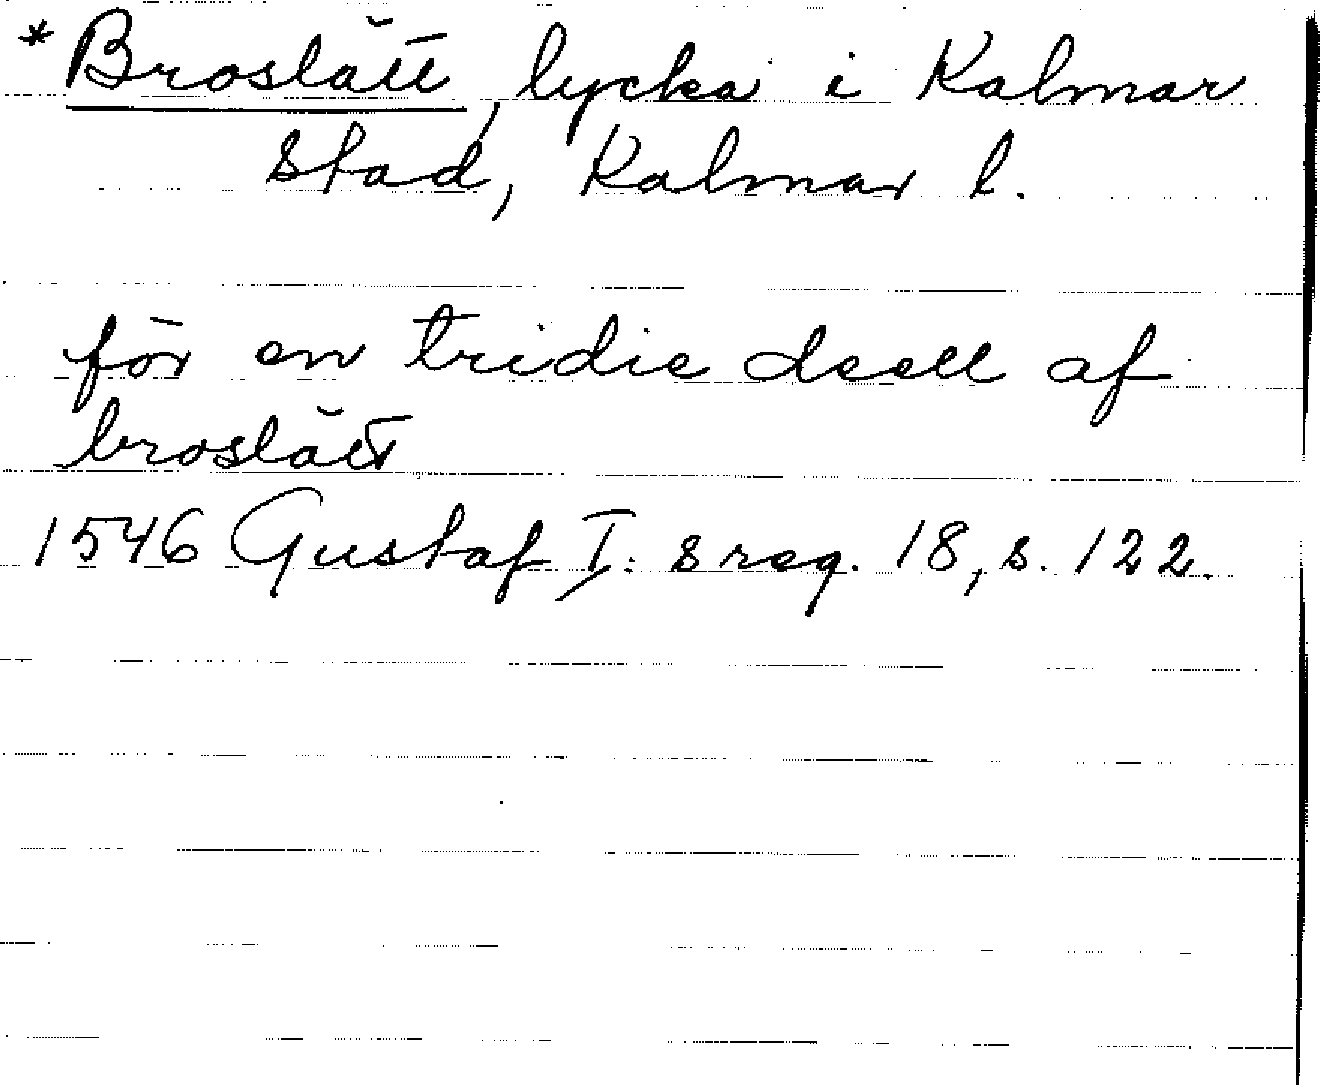 *Broslått, lycka i Kalmar
stad, Kalmar l.
för en tridie deell af
broslått
1546 Gustaf I:s reg. 18, s. 122.